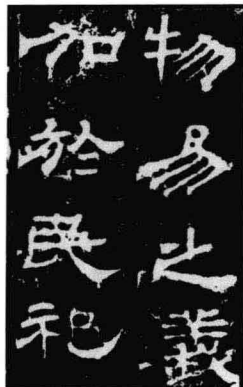 物易之義
加於民祀